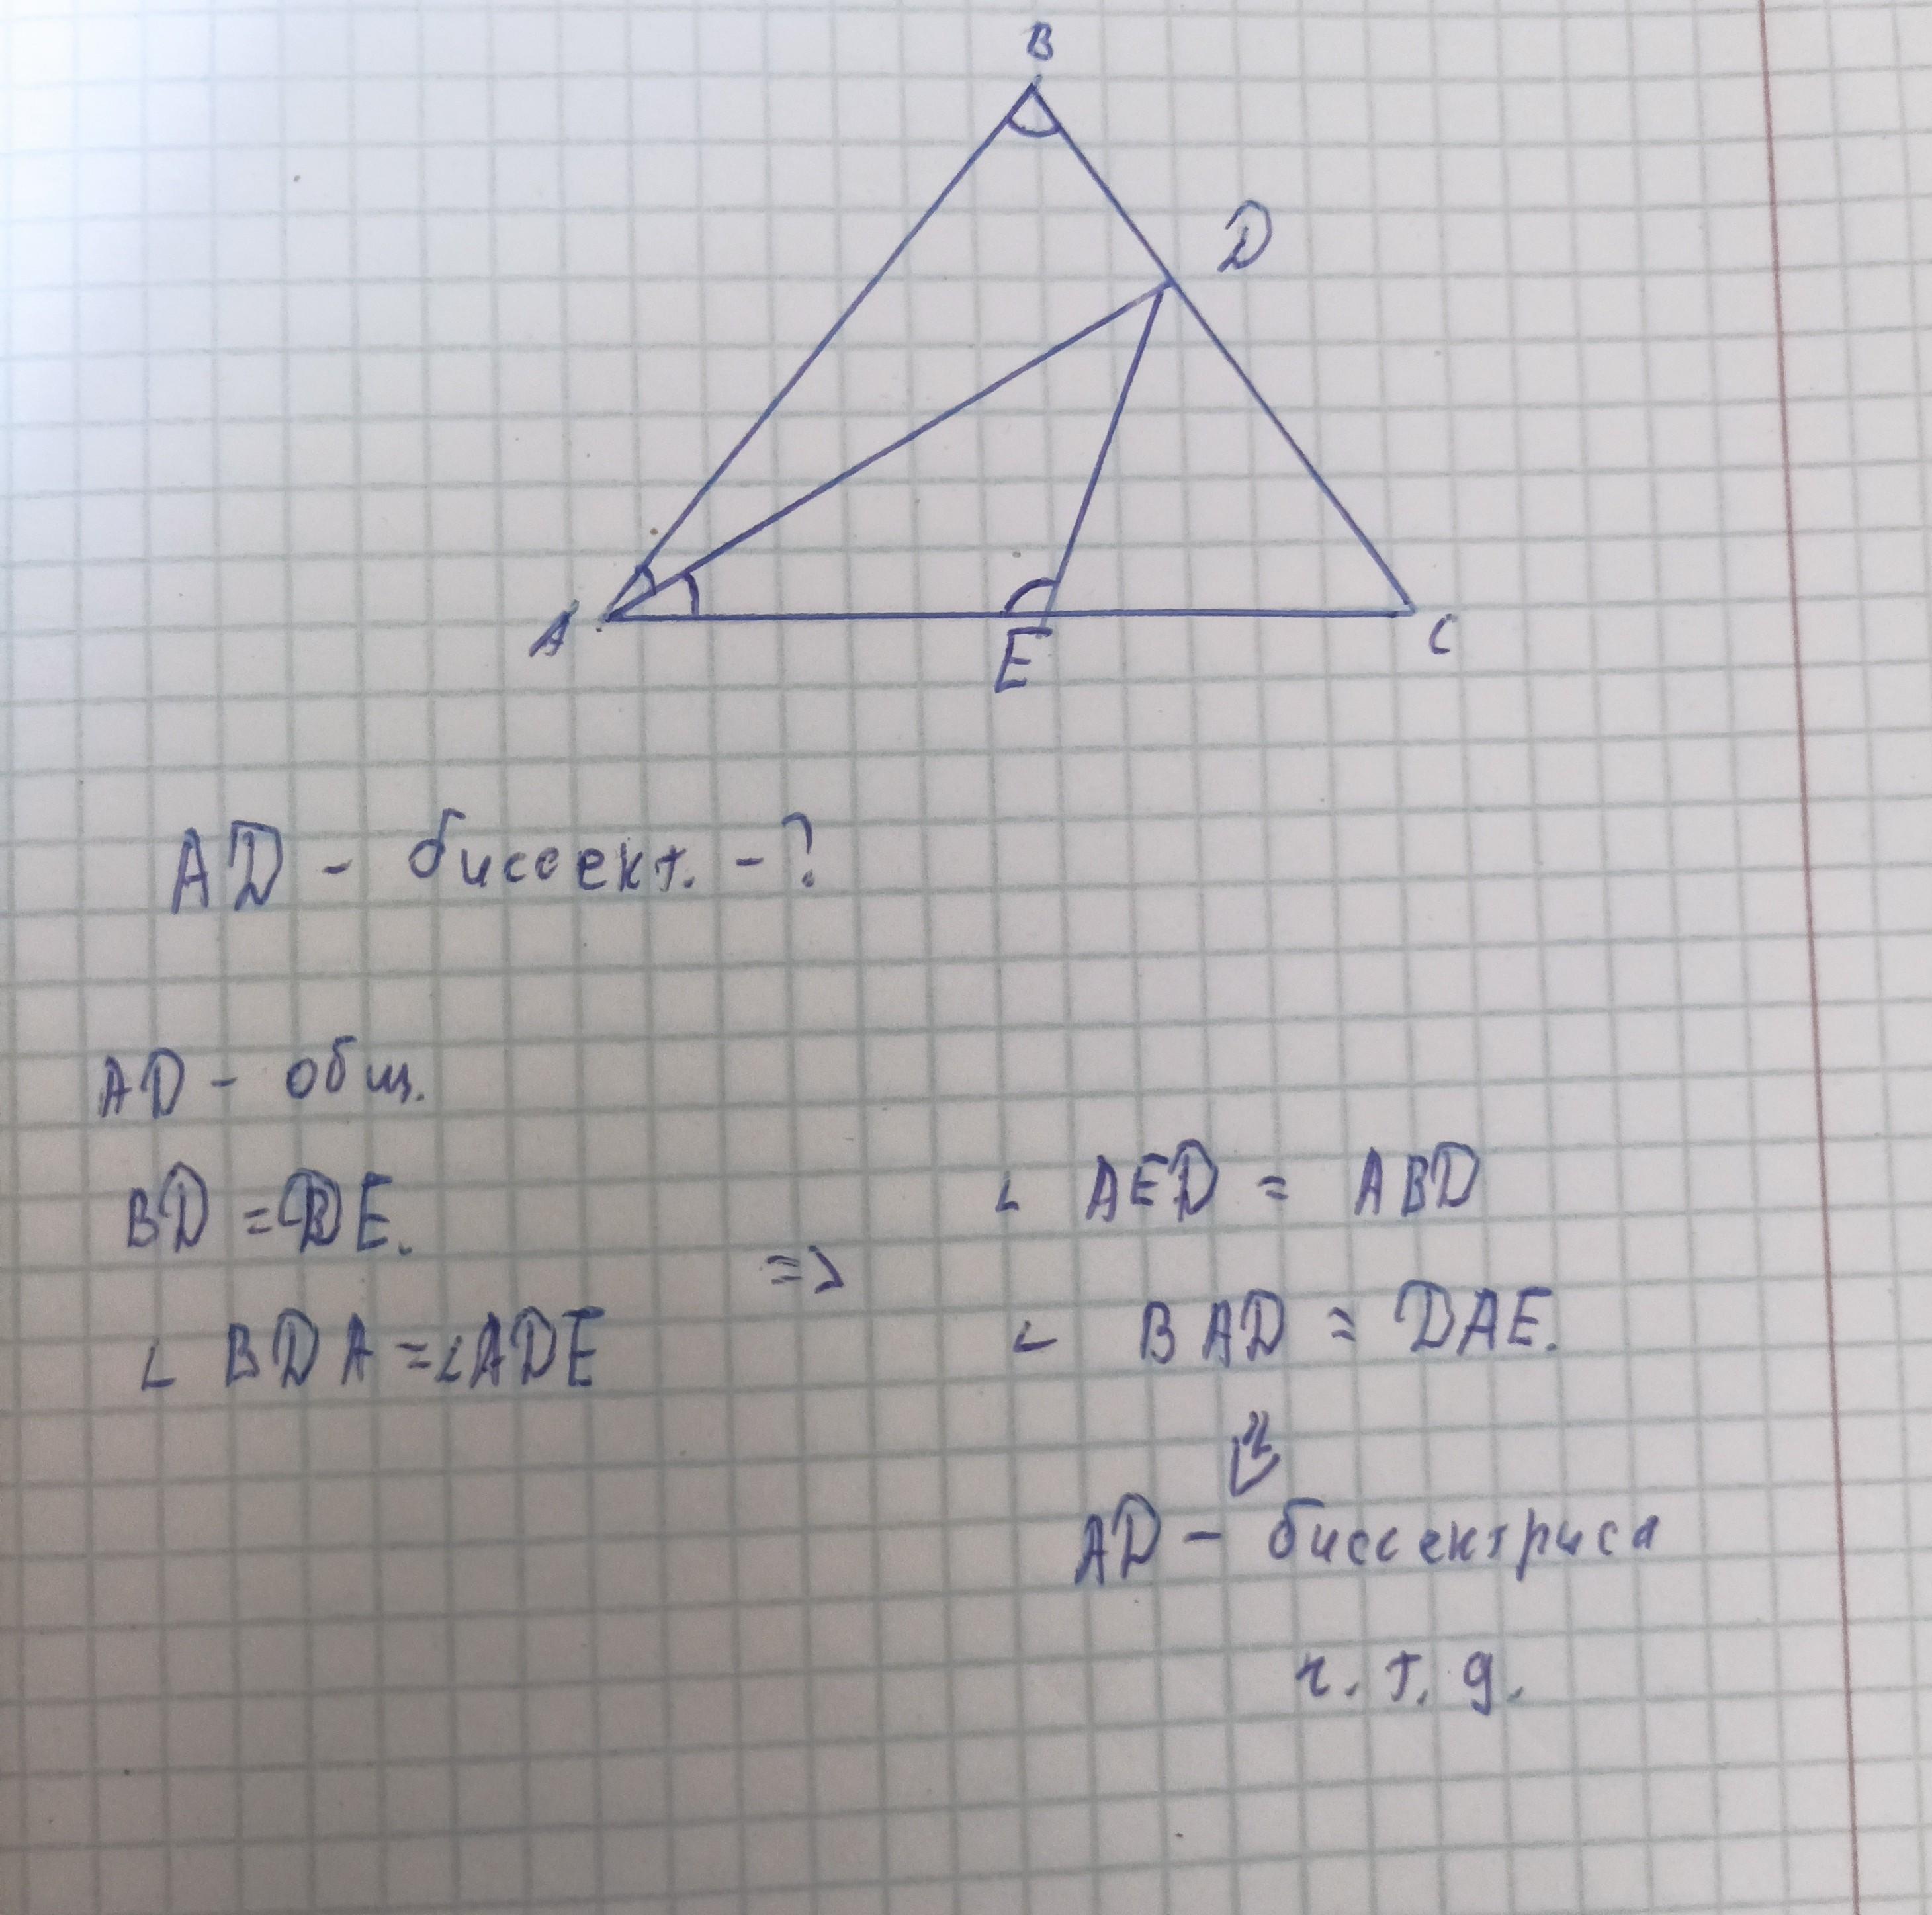 B
D
A
E
C
AD - биссект. - ?
AD - общ.
BD = DE.
∠ BDA = ∠ADE
=>
∠ AED = ABD
∠ BAD = DAE.
AD - биссектриса
ч. т. д.